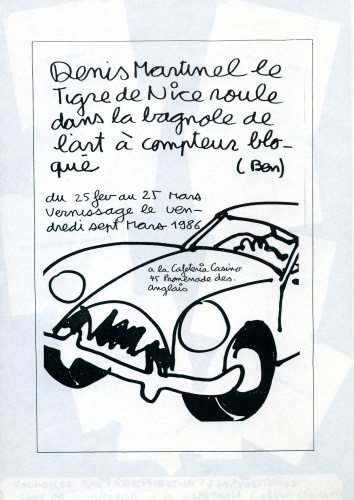 Denis Martinel le
Tigre de Nice roule
dans la bagnole de
l'art à compteur blo-
qué (Ben)
du 25 fev au 25 Mars
Vernissage le ven-
dredi sept Mars 1986
a la Cafeteria Casino
45 Promenade des
anglais